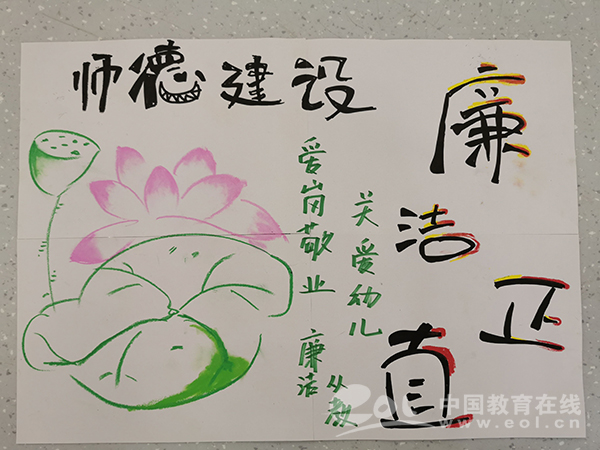 师德建设
廉洁正直
关爱幼儿
爱岗敬业 廉洁从教
中国教育在线
www.eol.cn